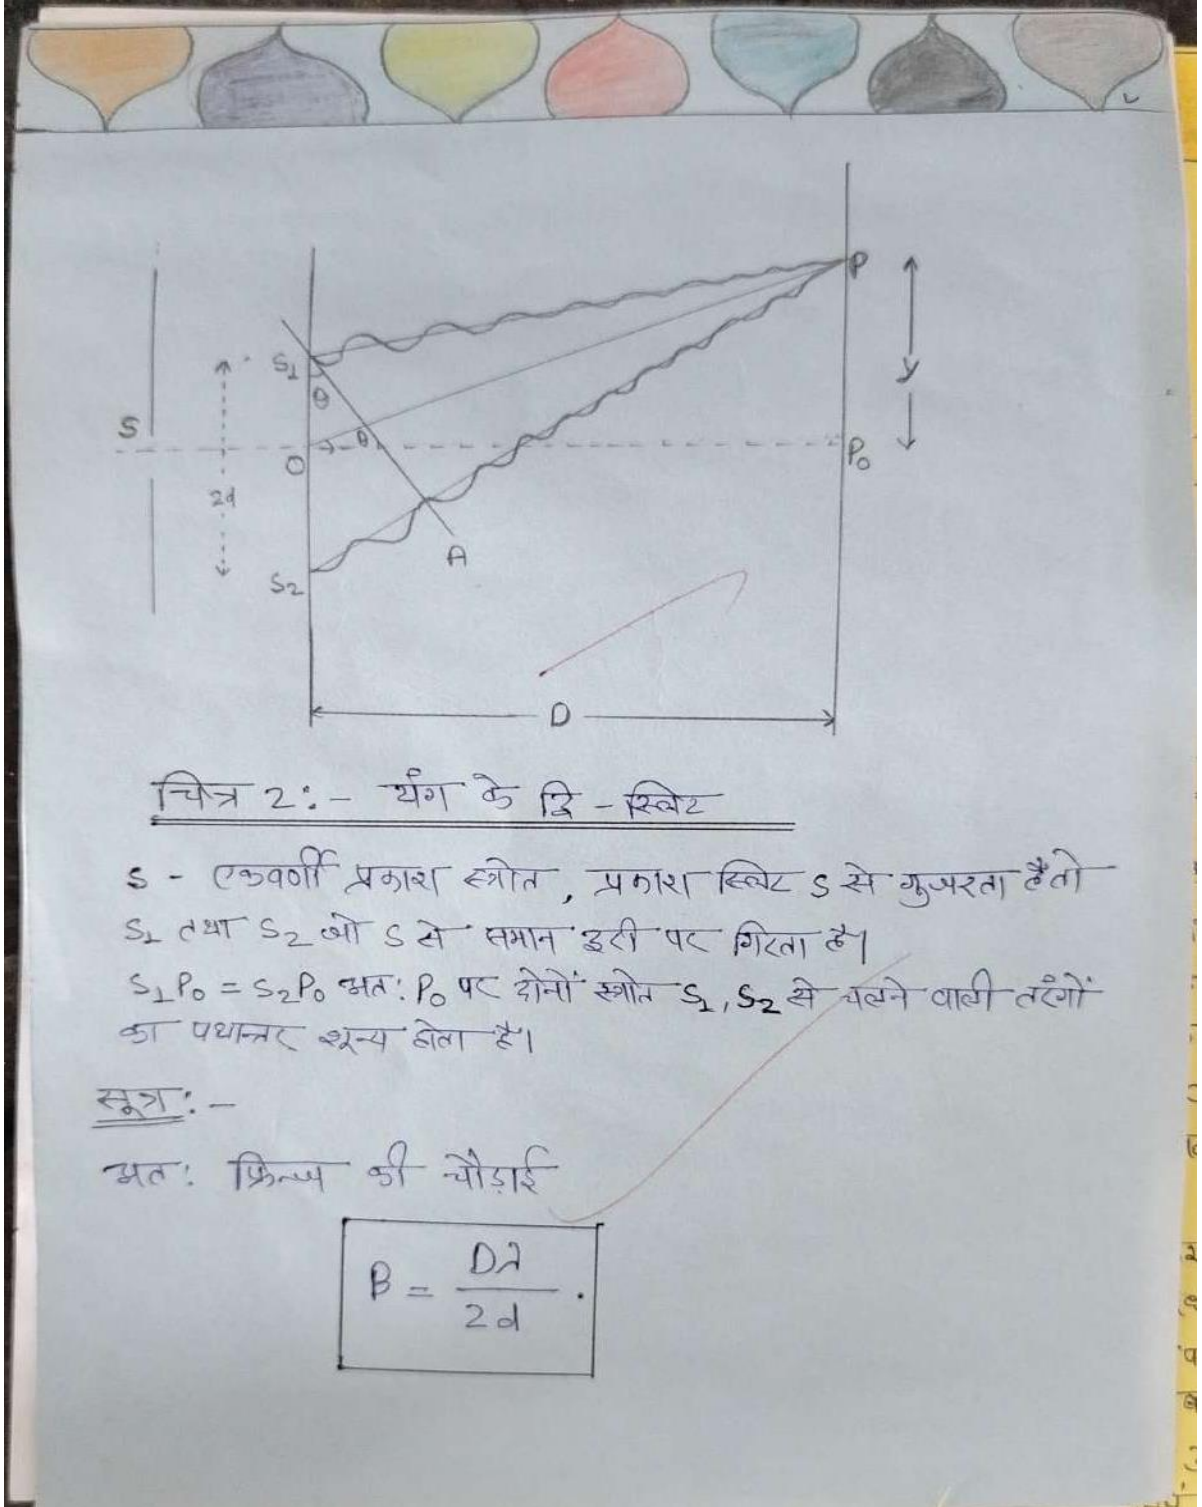 P
S₁
θ
y
S
θ
O
P₀
2d
A
S₂
D
चित्र 2:- यंग के द्वि-स्लिट
S - एकवर्णी प्रकाश स्त्रोत, प्रकाश स्लिट S से गुजरता है तो
S₁ तथा S₂ जो S से समान दुरी पर गिरता है।
S₁P₀ = S₂P₀ अत: P₀ पर दोनों स्त्रोत S₁, S₂ से चलने वाली तरंगों
का पथान्तर शून्य होता है।
सूत्र:-
अत: फ्रिन्ज की चौड़ाई
B = Dλ / 2d .